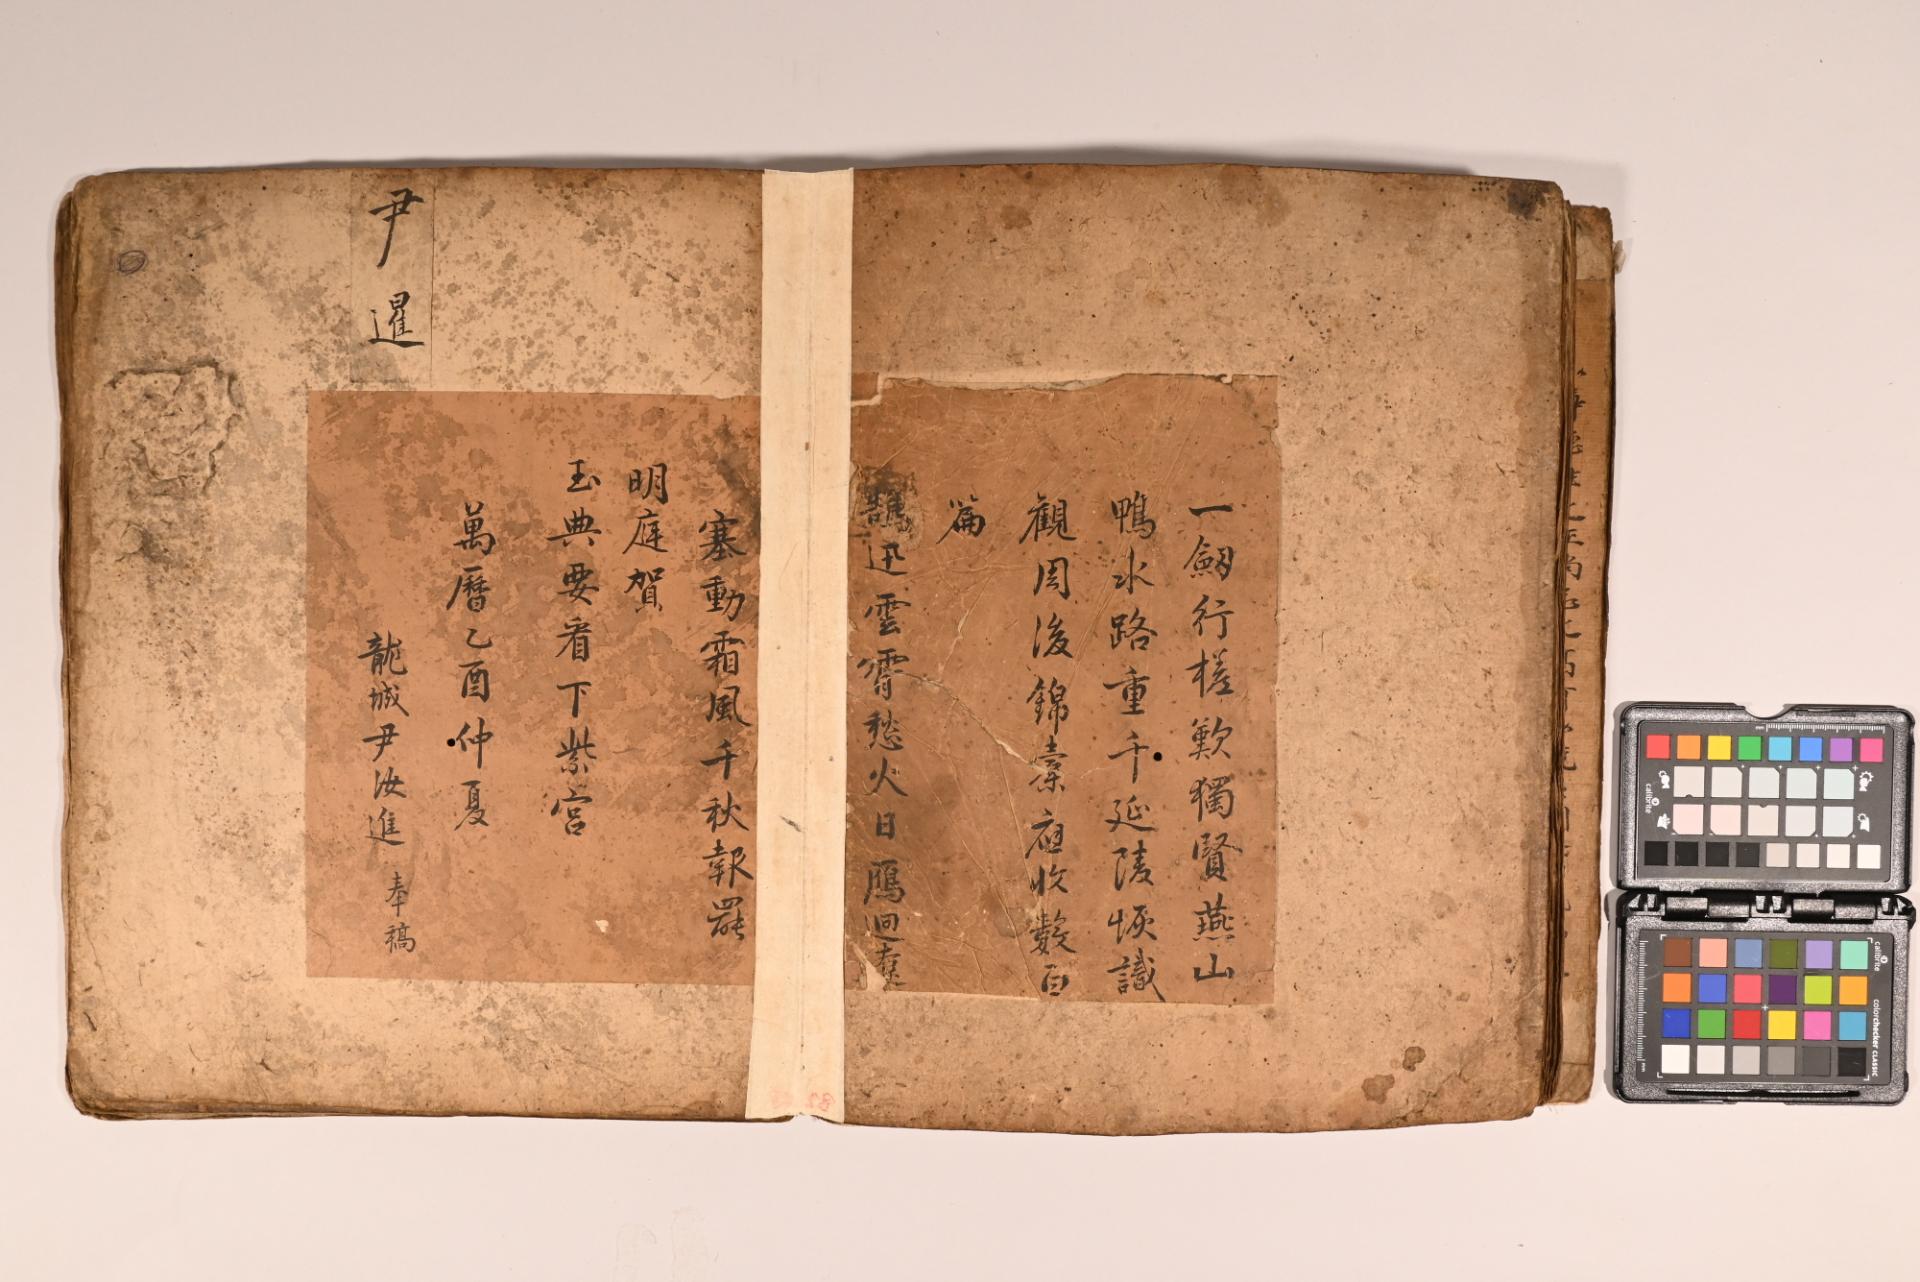 一劒行槎歎獨賢燕山
鴨水路重千延陵恢識
觀周後錦橐應收數百
篇
鵲迅雲霄愁火日鴈迴遼
塞動霜風千秋報罷
明庭賀
玉典要看下紫宮
萬曆乙酉仲夏
龍城尹汝進 奉稿
尹暹